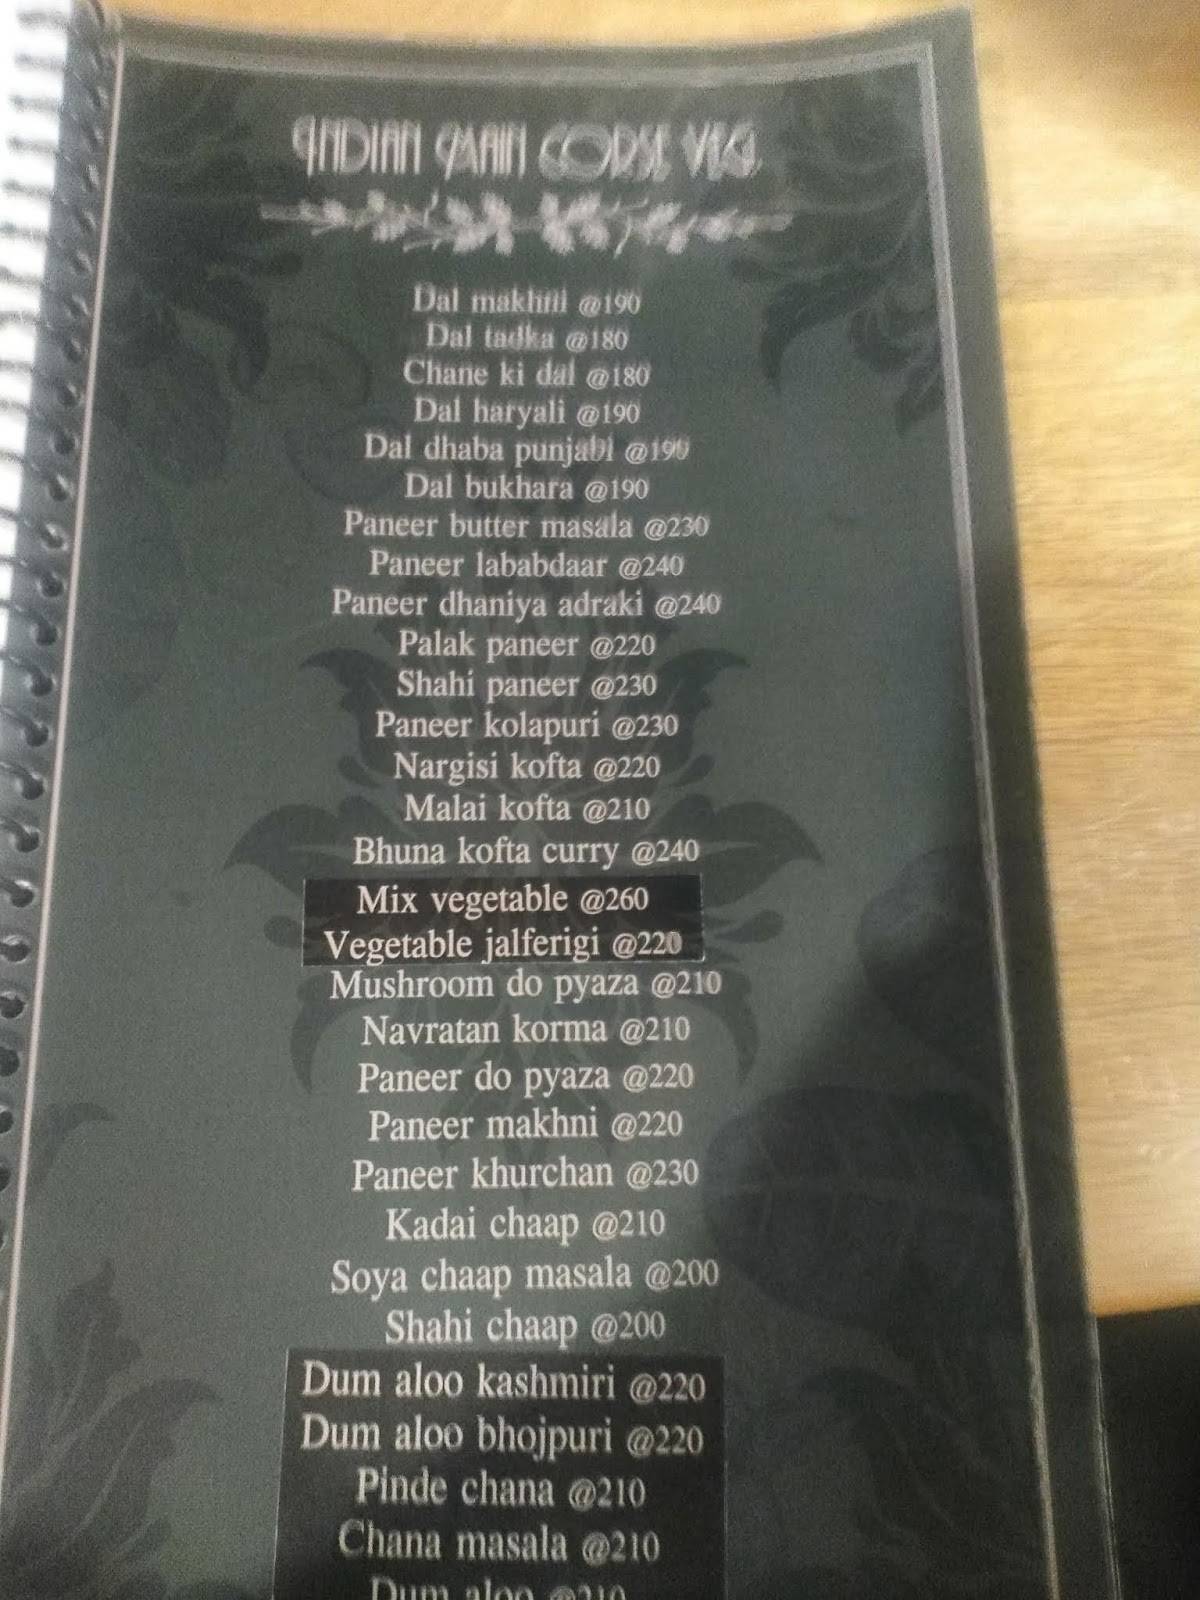 INDIAN MAIN CORSE VEG.
Dal makhni @190
Dal tadka @180
Chane ki dal @180
Dal haryali @190
Dal dhaba punjabi @190
Dal bukhara @190
Paneer butter masala @230
Paneer lababdaar @240
Paneer dhaniya adraki @240
Palak paneer @220
Shahi paneer @230
Paneer kolapuri @230
Nargisi kofta @220
Malai kofta @210
Bhuna kofta curry @240
Mix vegetable @260
Vegetable jalferigi @220
Mushroom do pyaza @210
Navratan korma @210
Paneer do pyaza @220
Paneer makhni @220
Paneer khurchan @230
Kadai chaap @210
Soya chaap masala @200
Shahi chaap @200
Dum aloo kashmiri @220
Dum aloo bhojpuri @220
Pinde chana @210
Chana masala @210
Dum aloo @210